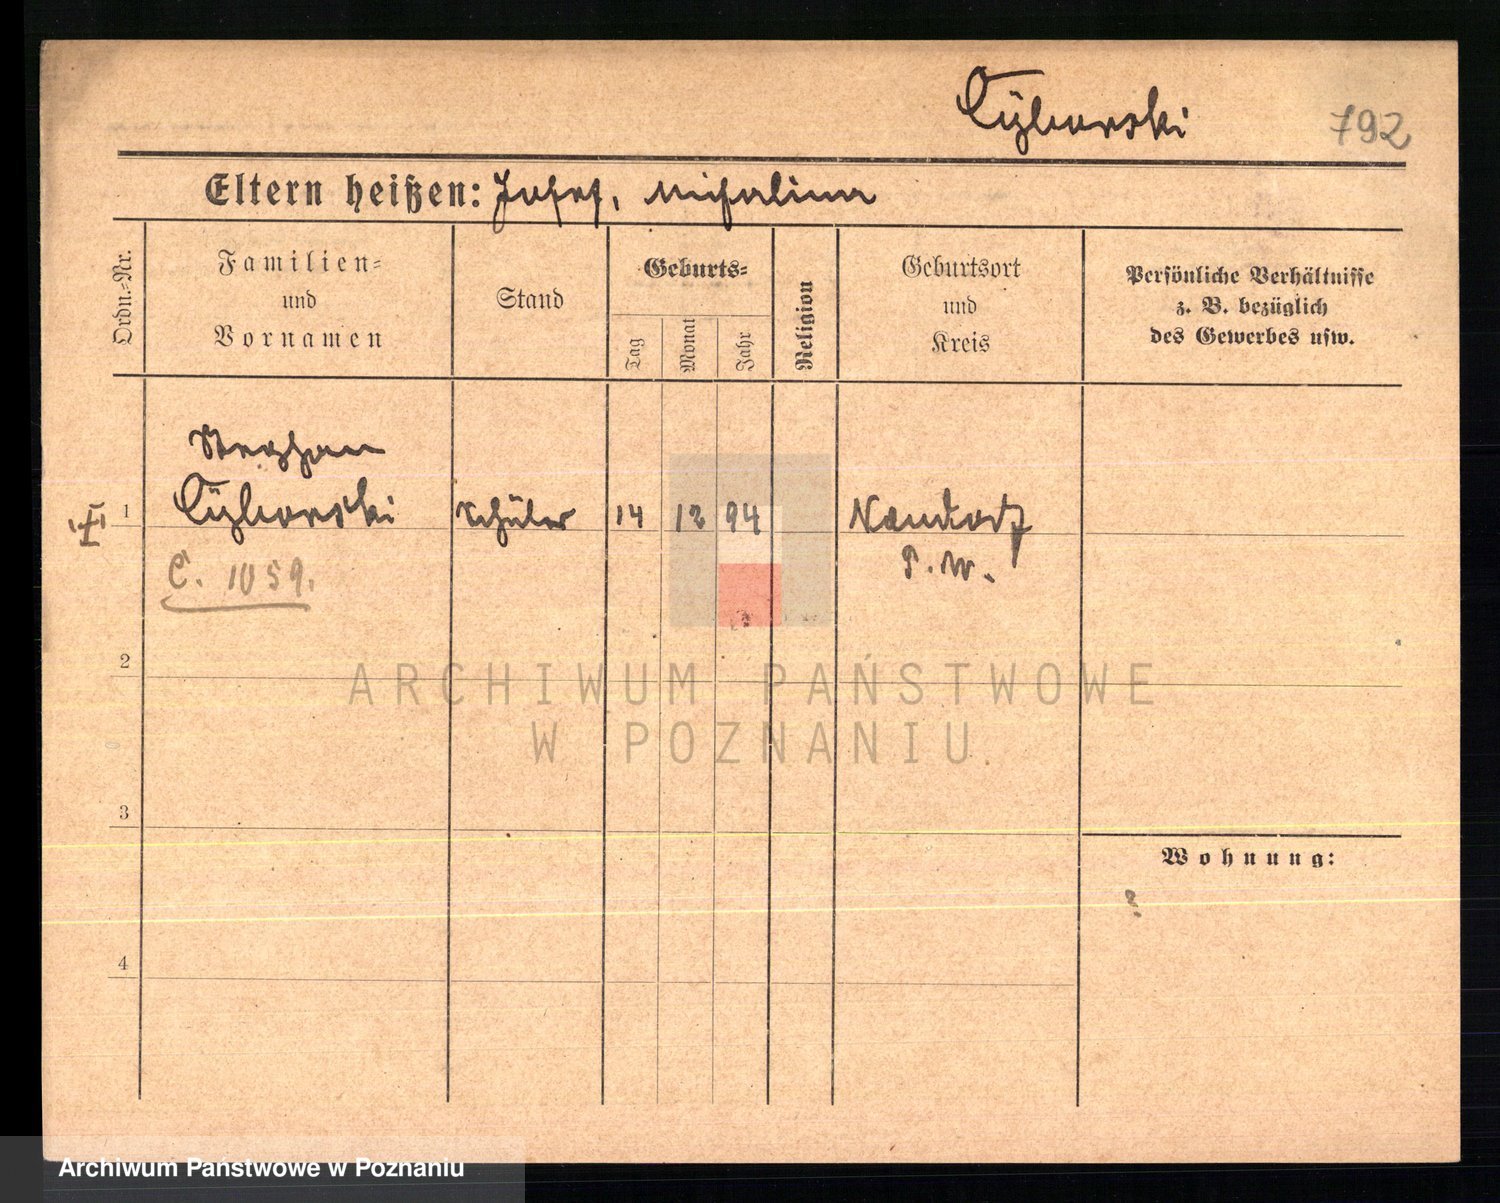 Cyborski 792
Eltern heißen: Josef, Michalina
Ordn.-Nr.
Familien-
und
Vornamen
Stand
Geburts-
Tag
Monat
Jahr
Religion
Geburtsort
und
Kreis
Persönliche Verhältnisse
z. B. bezüglich
des Gewerbes usw.
Stephan
1 Cyborski Schüler 14 12 94
P. W.
C. 1059.
2
ARCHIWUM PAŃSTWOWE
W POZNANIU
3
Wohnung:
?
4
Archiwum Państwowe w Poznaniu